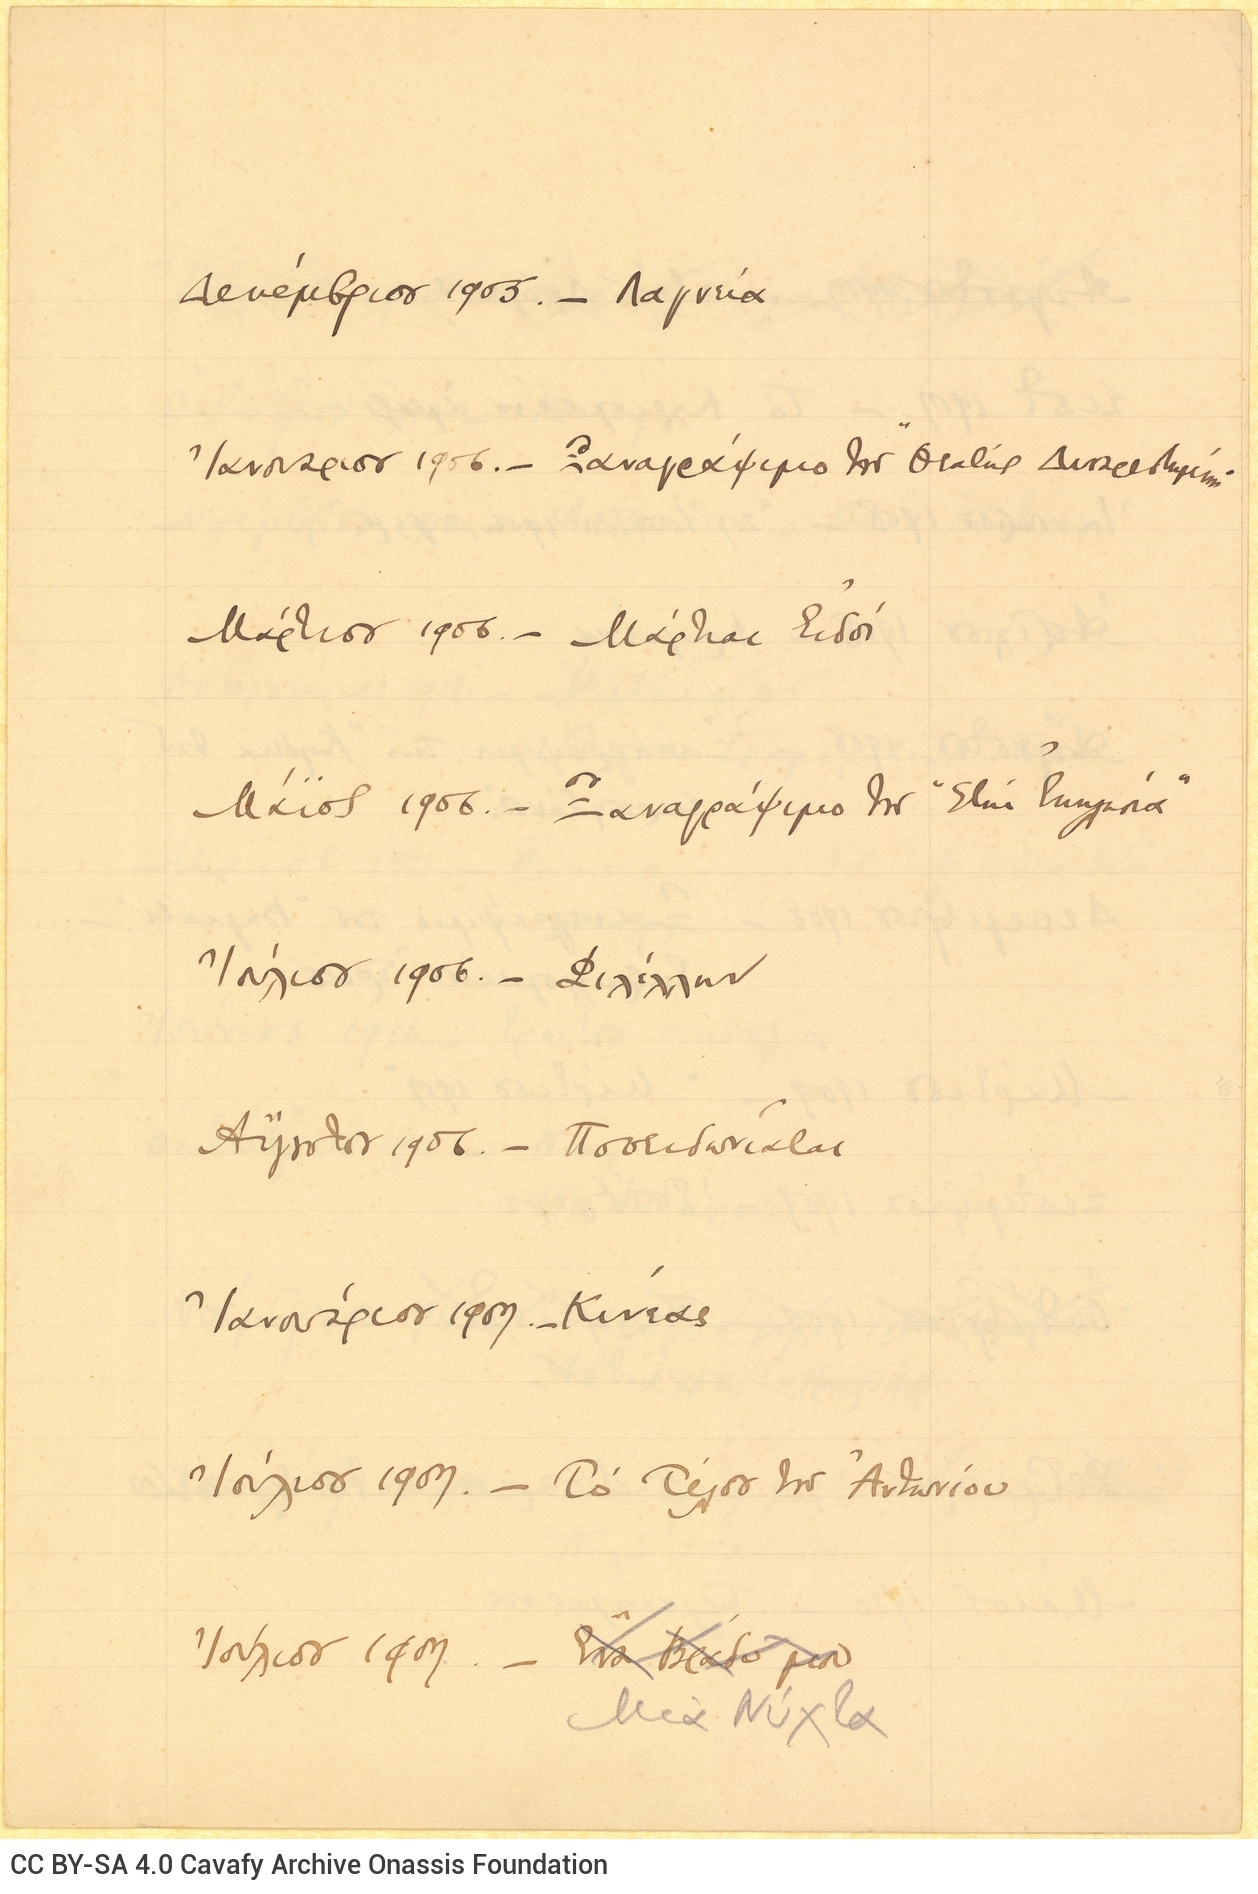 Δεκέμβριου 1905. — Λαγνεία
Ἰανουάριου 1906. — Ξαναγράψιμο του "Θεατής Δυσαρεστημένος"
Μάρτιου 1906. — Μάρτιαι Εἰδοί
Μάϊος 1906. — Ξαναγράψιμο του "Στην Ἐκκλησία"
Ἰούλιου 1906. — Φιλέλλην
Αὔγουστου 1906. — Ποσειδωνιάται
Ἰανουάριου 1907. — Κινέας
Ἰούλιου 1907. — Το Τέλος του Ἀντωνίου
Ἰούλιου 1907. — Ἕνα Βράδυ μου
Μιὰ Νύχτα
CC BY-SA 4.0 Cavafy Archive Onassis Foundation